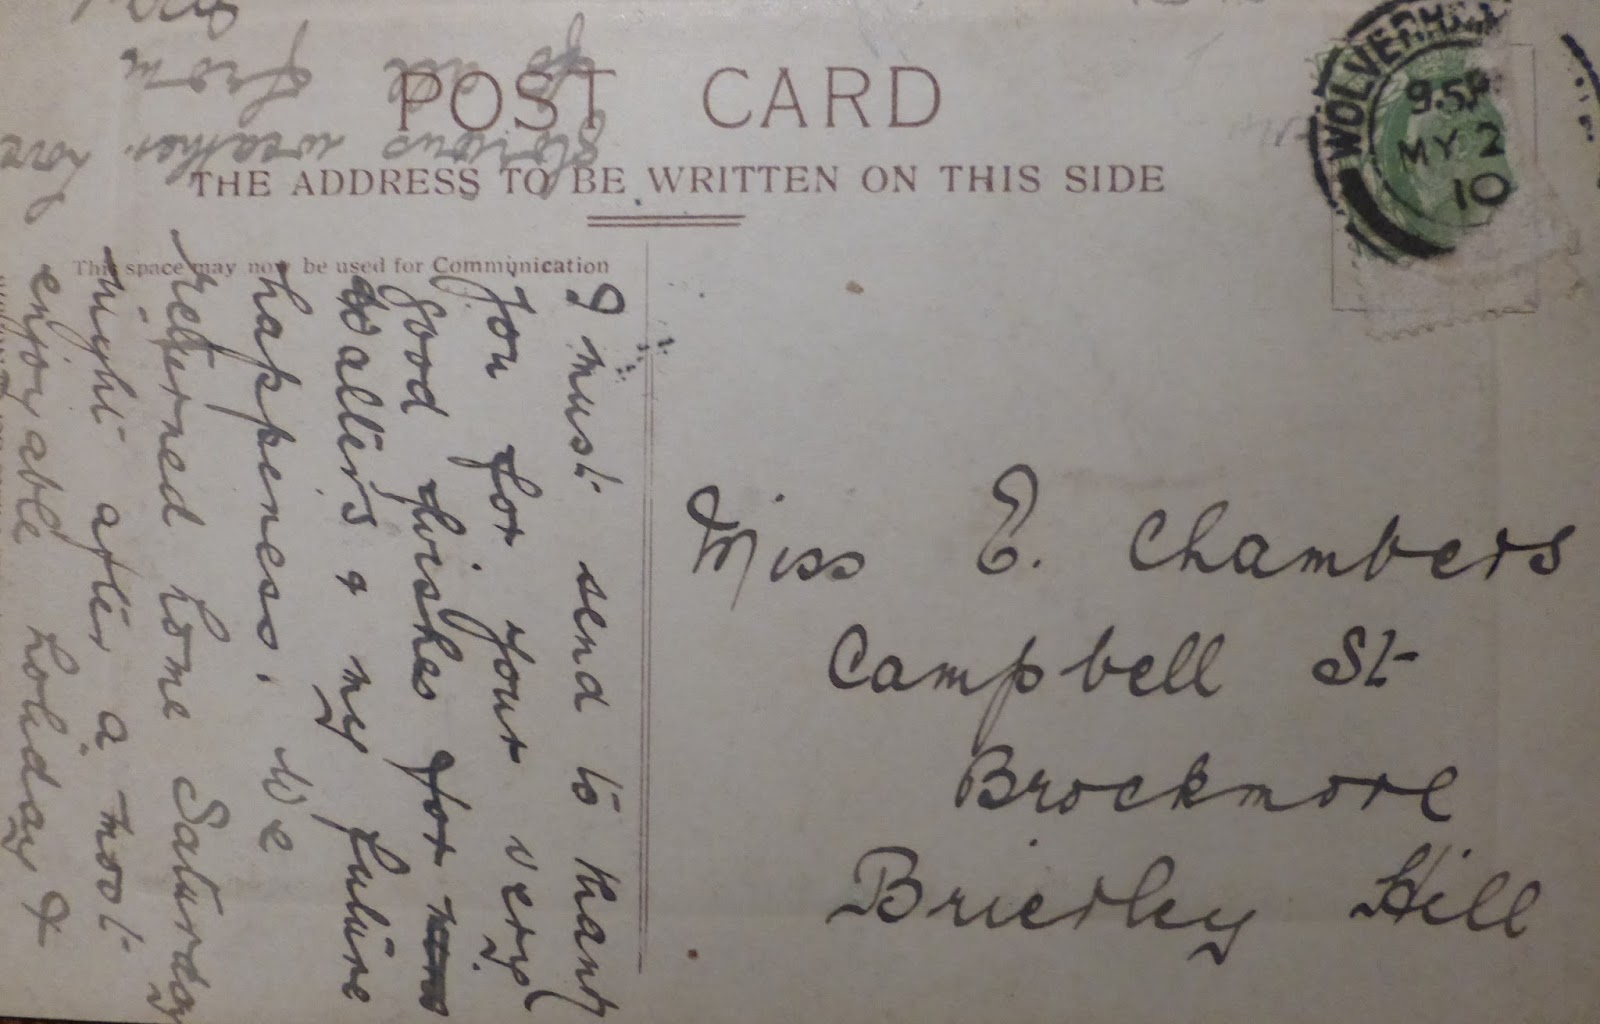 POST CARD
THE ADDRESS TO BE WRITTEN ON THIS SIDE
This space may now be used for Communication
WOLVERH
9.5P
MY 2
10
Miss E. Chambers
Campbell St
Brockmore
Brierley Hill
I must send to thank
you for your very
good wishes for
Walters & my future
happeness. We
returned home Saturday
night after a most
enjoyable holiday &
glorious weather. love
to all from